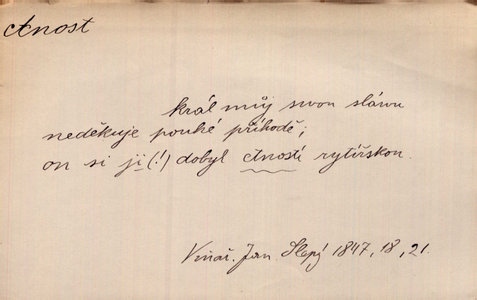 ctnost
král můj svou slávu
neděkuje pouhé příhodě;
on si ji (!) dobyl ctností rytířskou.
Vinař. Jan. Slepý 1847, 18, 21.